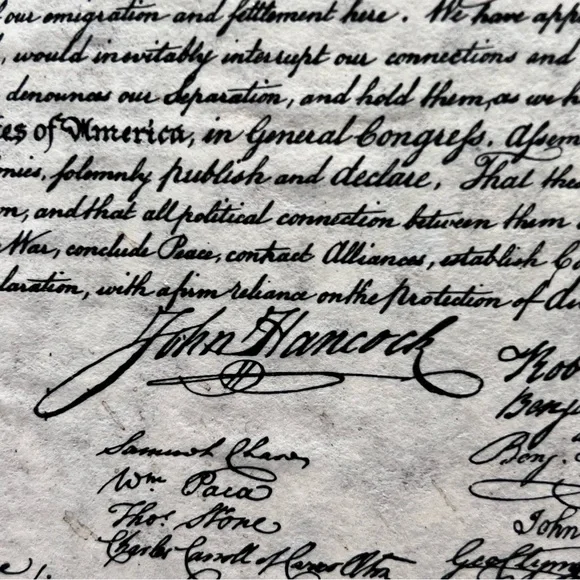 our emigration and settlement here. We have app
, would inevitably interrupt our connections and
denounces our Separation, and hold them, as we h
es of America, in General Congress, Assem
nies, solemnly publish and declare, That thes
on, and that all political connection between them
War, conclude Peace, contract Alliances, establish Co
laration, with a firm reliance on the protection of di
John Hancock
Rob
Benj
Samuel Chase
Benj.
Wm Paca
Thos. Stone
John
Charles Carroll of Carrollton
Geo. Clym